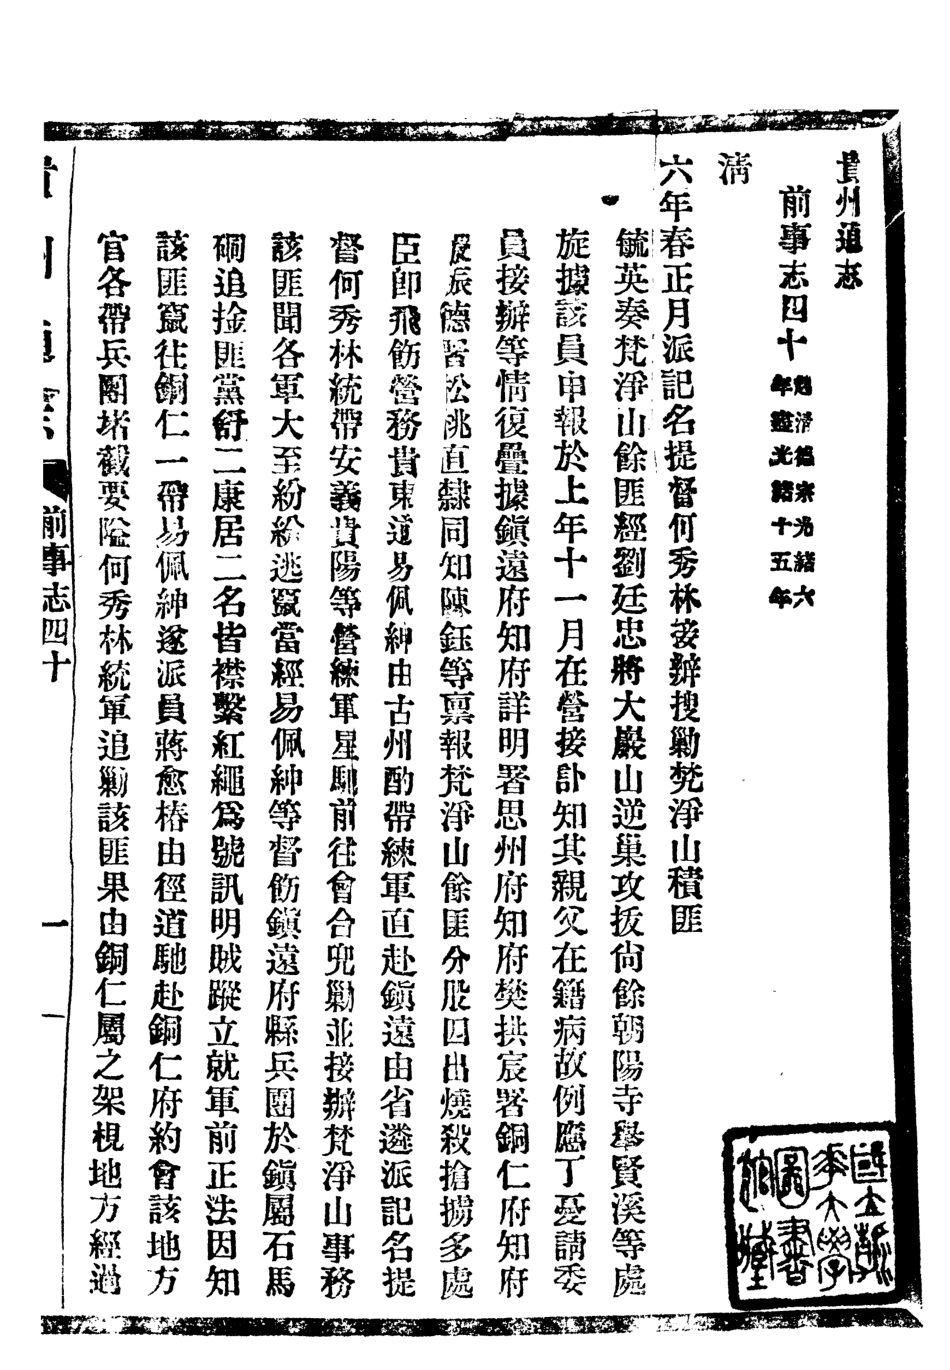 貴州通志
前事志四十 起清德宗光緒六年盡光緒十五年
清
六年春正月派記名提督何秀林接辦搜勦梵淨山積匪
毓英奏梵淨山餘匪經劉廷忠將大巖山逆巢攻拔尙餘朝陽寺舉賢溪等處
旋據該員申報於上年十一月在營接訃知其親父在籍病故例應丁憂請委
員接辦等情復疊據鎭遠府知府詳明署思州府知府樊拱宸署銅仁府知府
辰德署松桃直隸同知陳鈺等稟報梵淨山餘匪分股四出燒殺搶擄多處
臣卽飛飭營務貴東道易佩紳由古州酌帶練軍直赴鎭遠由省遴派記名提
督何秀林統帶安義貴陽等營練軍星馳前往會合兜勦並接辦梵淨山事務
該匪聞各軍大至紛紛逃竄當經易佩紳等督飭鎭遠府縣兵團於鎭屬石馬
硐追捡匪黨舒二康居二名皆襟繫紅繩爲號訊明賊蹤立就軍前正法因知
該匪竄往銅仁一帶易佩紳遂派員蔣愈椿由徑道馳赴銅仁府約會該地方
官各帶兵團堵截要隘何秀林統軍追勦該匪果由銅仁屬之架梘地方經過
貴州通志 前事志四十 一
國立清華大學圖書館藏